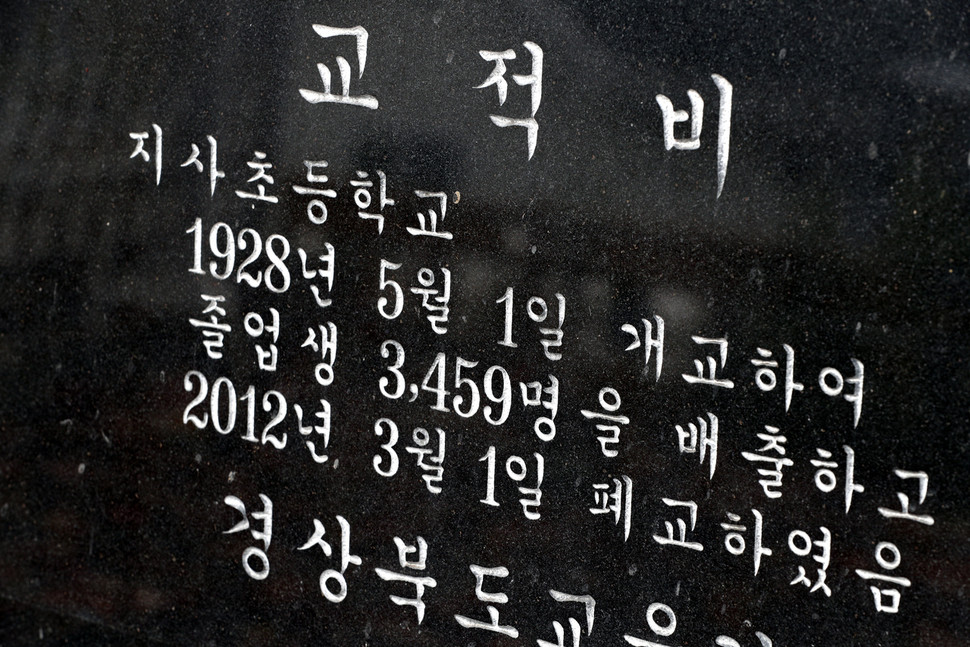 교적비
지사초등학교
1928년 5월 1일 개교하여
졸업생 3,459명을 배출하고
2012년 3월 1일 폐교하였음
경상북도교육